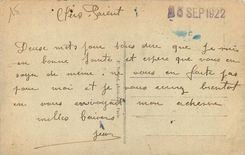 18 SEP 1922
Chers Parent
Deux mots pour vous dire que je suis
en bonne Santé et espere que vous en
soyez de même. ne vous en faite pas
pour moi et je vous ecrirez bientot
en vous envoyant mon adresse
milles baisers
Jean